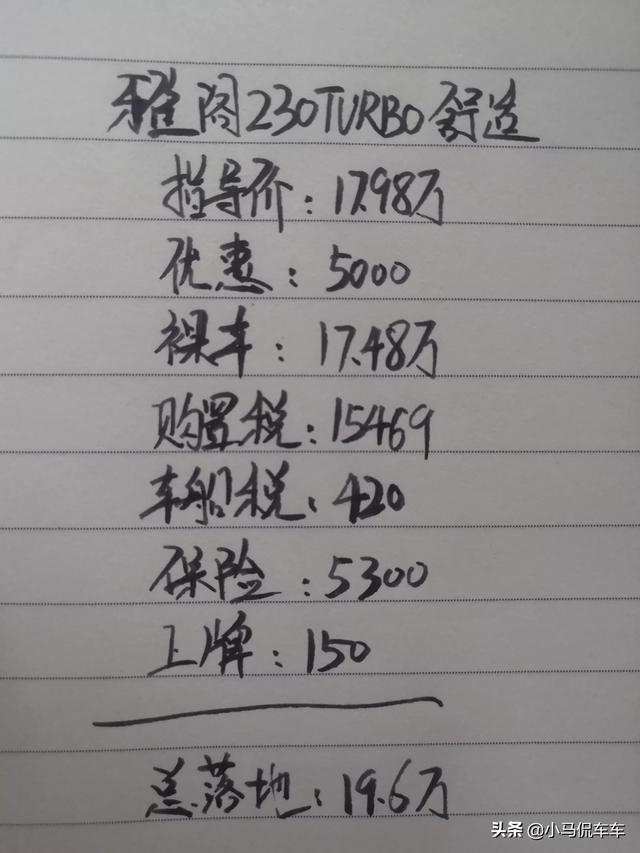 雅阁230TURBO舒适
指导价：17.98万
优惠：5000
裸车：17.48万
购置税：15469
车船税：420
保险：5300
上牌：150
总落地：19.6万
头条 @小马侃车车